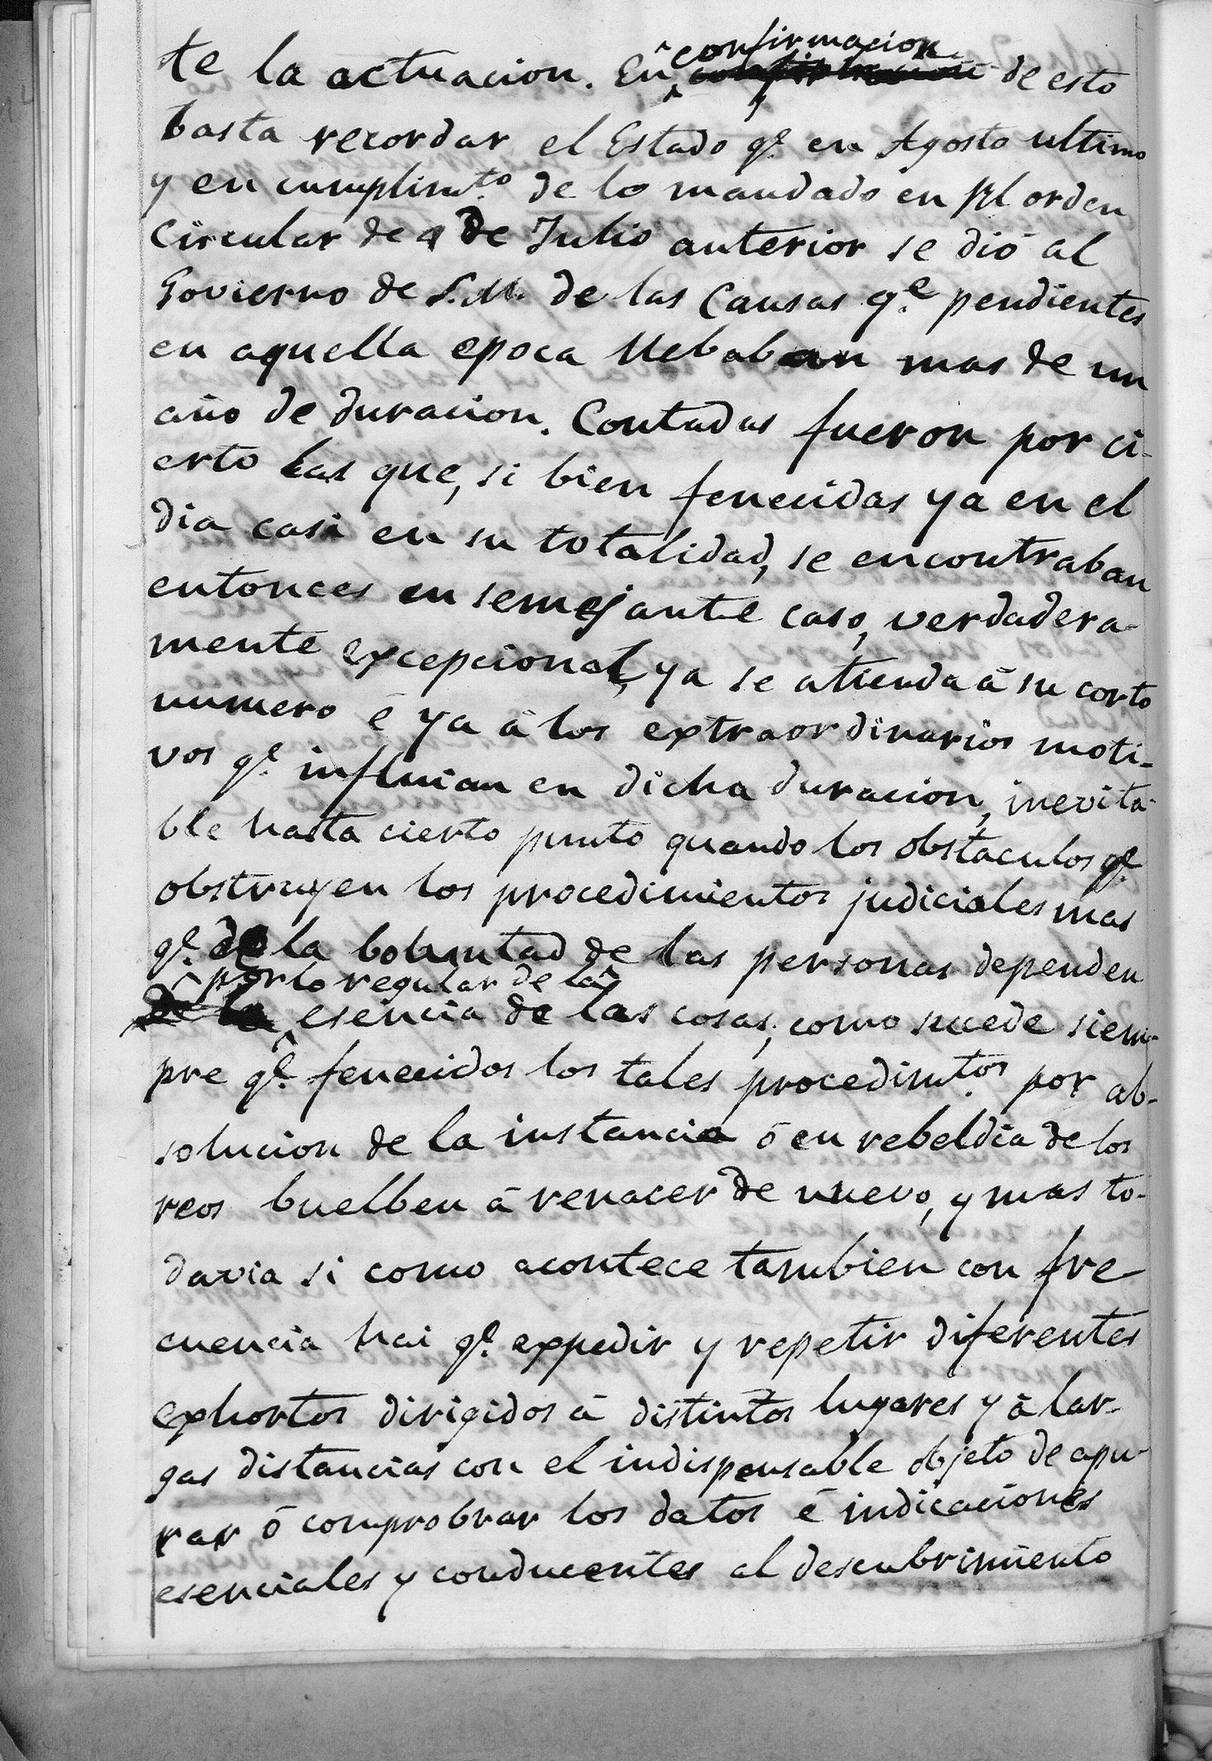 te la actuacion. En confirmacion de esto
basta recordar el Estado q.e en Agosto ultimo
y en cumplim.to de lo mandado en Rl orden
Circular de 9 de Julio anterior se dió al
Govierno de S.M. de las Causas q.e pendientes
en aquella epoca llebaban mas de un
año de duracion. Contadas fueron por ci-
erto las que, si bien fenecidas ya en el
dia casi en su totalidad, se encontraban
entonces en semejante caso, verdadera-
mente excepcional, ya se atienda á su corto
numero é ya á los extraordinarios moti-
vos q.e influian en dicha duracion, inevita-
ble hasta cierto punto quando los obstaculos q.e
obstruyen los procedimientos judiciales mas
q.e de la boluntad de las personas dependen
por lo regular de la
esencia de las cosas, como sucede siem-
pre q.e fenecidos los tales procedim.tos por ab-
solucion de la instancia ó en rebeldia de los
reos buelben á renacer de nuevo, y mas to-
davia si como acontece tambien con fre
cuencia hai q.e expedir y repetir diferentes
exhortos dirigidos á distintos lugares y á lar-
gas distancias con el indispensable objeto de apu-
rar ó comprobrar los datos é indicaciones
esenciales y conducentes al descubrimiento